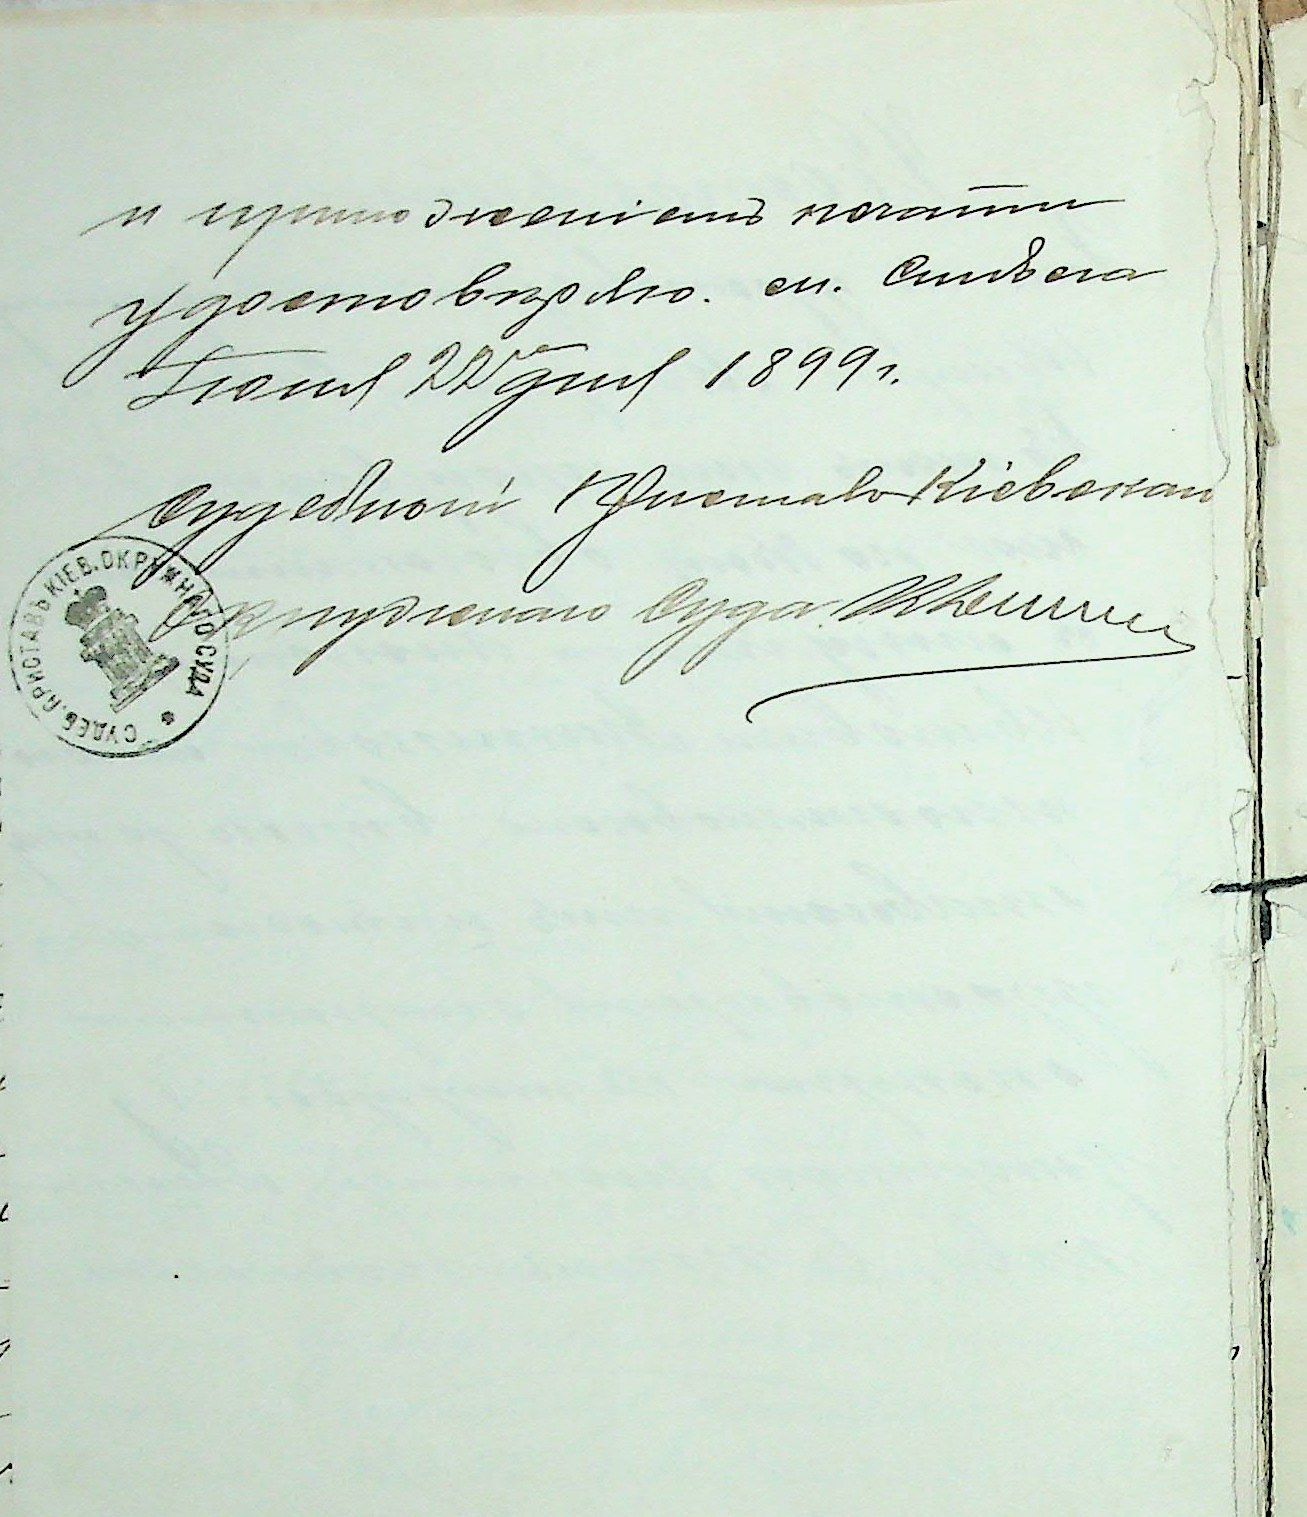 и приложеніемъ печати
удостовѣряю. м. Смѣла
Іюня 22го дня 1899 г.
Судебный Приставъ Кіевскаго
Окружнаго Суда
СУДЕБ. ПРИСТАВЪ КІЕВ. ОКРУЖНАГО СУДА